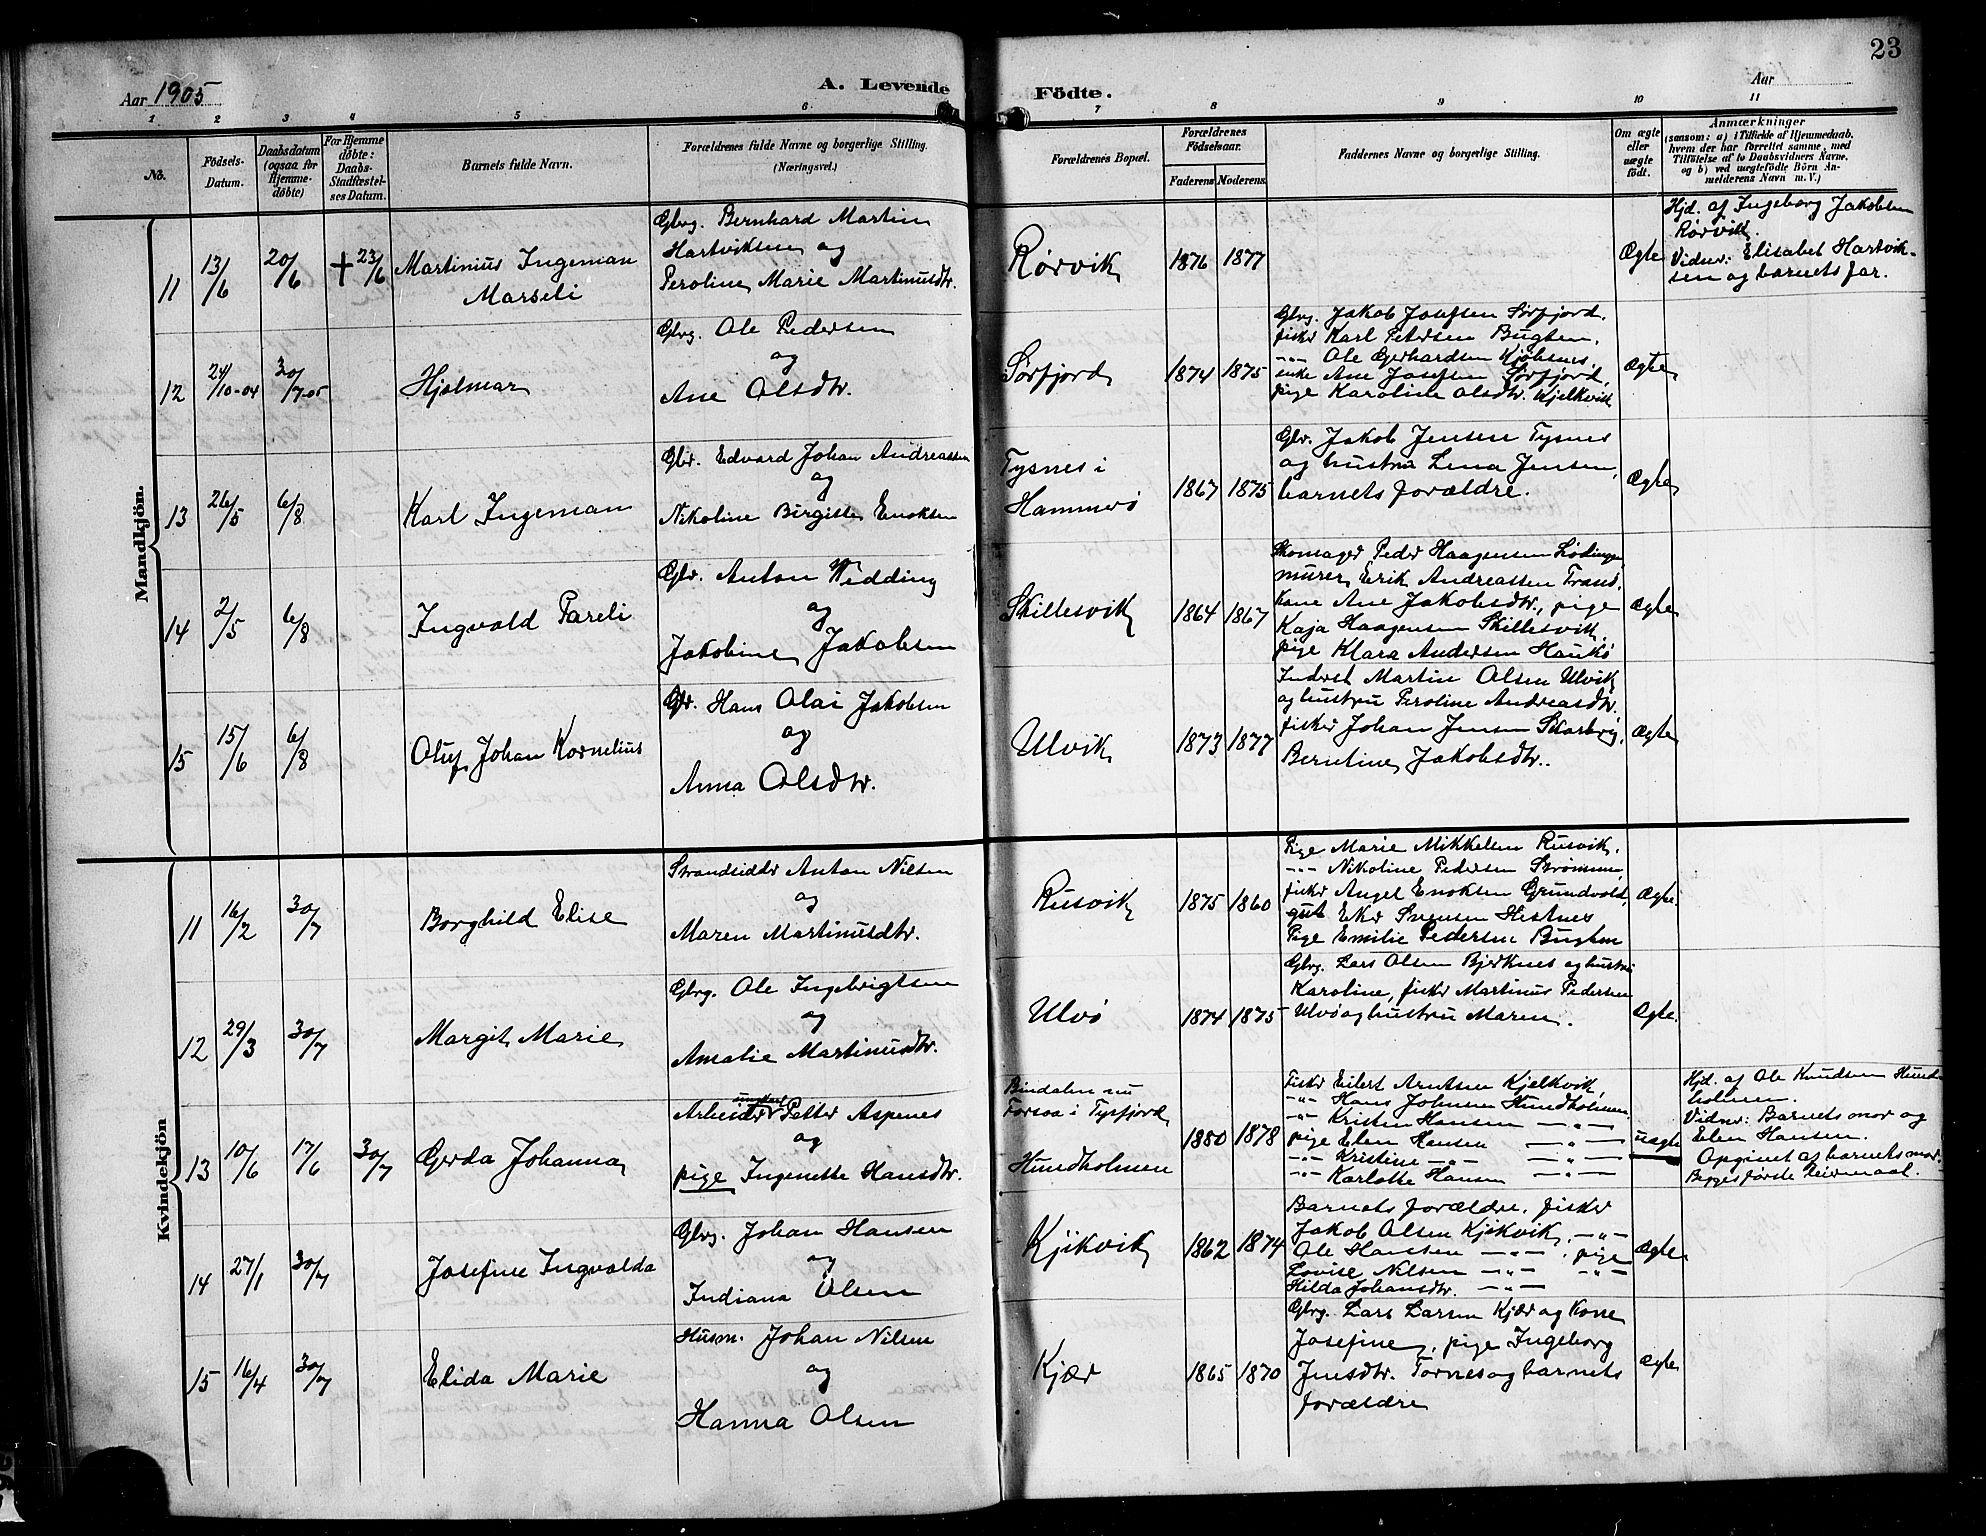 23
Aar 1905
A. Levende
Födte.
Aar
1 2 3 4 5 6 7 8 9 10 11
No.
Födsels-
Datum.
Daabsdatum
(ogsaa for
Hjemme-
döbte)
For Hjemme
döbte:
Daabs-
Stadfæstel-
ses Datum.
Barnets fulde Navn.
Forældrenes fulde Navne og borgerlige Stilling.
(Næringsvei.)
Forældrenes Bopæl.
Forældrenes
Födselsaar.
Faderens Moderens
Faddernes Navne og borgerlige Stilling.
Om ægte
eller
uægte
födt.
Anmærkninger
(saasom: a) i Tilfælde af Hjemmedaab.
hvem der har forrettet samme, med
Tilföielse af to Daabsvidners Navne,
og b) ved uægtefödte Börn An-
melderens Navn m. V.)
Mandkjön.
11 13/6 20/6 + 23/6
Martinius Ingeman
Marseli
Gbrg. Bernhard Martin
Hartviksen og
Peroline Marie Martinusdtr.
Rørvik
1876 1877
Ægte
Hjd. af Ingeborg Jakobsen
Rørvik.
Vidner: Elisabet Hartvik-
sen og barnets far.
12 24/10-04 30/7-05
Hjalmar
Gbrg. Ole Pedersen
og
Ane Olsdtr.
Sørfjord
1874 1875
Gbrg. Jakob Josefsen Sørfjord.
fisker Karl Petersen Bugten.
-"- Ole Gerhardsen Kjøbsnes,
enke Ane Josefsen Sørfjord,
pige Karoline Olsdtr. Kjelkvik
Ægte
13 26/5 6/8
Karl Ingeman
Gbr. Edvard Johan Andreassen
og
Nikoline Birgitte Enoksen
Tysnes i
Hammerø
1867 1875
Gbr. Jakob Jensen Tysnes
og hustru Lena Jensen,
barnets forældre.
Ægte
14 2/5 6/8
Ingvald Pareli
Gbr. Anton Wedding
og
Jakobine Jakobsen
Skillesvik
1864 1867
Skomager Peder Haagensen Lødingen
murer Erik Andreassen Tranö.
Kone Ane Jakobsdtr., pige
Kaja Haagensen Skillesvik,
pige Klara Andersen Haukø
Ægte
15 15/6 6/8
Oluf Johan Kornelius
Gbr. Hans Olai Jakobsen
og
Anna Olsdtr.
Ulvik
1873 1877
Inderst Martin Olsen Ulvik
og hustru Peroline Andreasdtr.
fisker Johan Jensen Skarberg,
Berntine Jakobsdtr.
Ægte
Kvindekjön
11 16/2 30/7
Borghild Elise
Strandsidder Anton Nilsen
og
Maren Martinusdtr.
Rusvik
1875 1860
Pige Marie Mikkelsen Rusvik.
-"- Nikoline Pedersen Strømmen,
fisker Angel Enoksen Grundvold,
gut Eker Sørensen Hestnes
Pige Emilie Pedersen Bugten
Ægte.
12 29/3 30/7
Margit Marie
Gbrg. Ole Ingebrigtsen
og
Amalie Martinusdtr.
Ulvø
1874 1875
Gbrg. Lars Olsen Bjerknes og hustru
Karoline, fisker Martinus Pedersen
Ulvø og hustru Maren.
Ægte.
13 10/6 17/6 30/7
Gerda Johanna
ungkarl
Arbeider Petter Aspenes
og
pige Ingenette Hansdtr.
Bindalen nu
Forsaa i Tysfjord
Hundholmen
1880 1878
Fisker Eilert Arntsen Kjelkvik,
-"- Hans Johnsen Hundholmen
-"- Kristen Hansen -"-
pige Elen Hansen -"-
-"- Kristine -"- -"-
-"- Karlotte Hansen -"-
uægte
Hjd. af Ole Knudsen Hund-
holmen.
Vidner: Barnets mor og
Elen Hansen.
Opgivet af barnets mor.
Begges første leiermaal.
14 27/1 30/7
Josefine Ingvalda
Gbrg. Johan Hansen
og
Indiana Olsen
Kjikvik
1862 1874
Barnets forældre, fisker
Jakob Olsen Kjikvik, -"-
Ole Hansen -"-, pige
Lovise Nilsen -"- -"-
Hilda Johansdtr. -"-
Ægte
15 16/4 30/7
Elida Marie
Husm. Johan Nilsen
og
Hanna Olsen
Kjær
1865 1870
Gbrg. Lars Larsen Kjær og Kone
Josefine, pige Ingeborg
Jensdtr. Tornes og barnets
forældre
Ægte